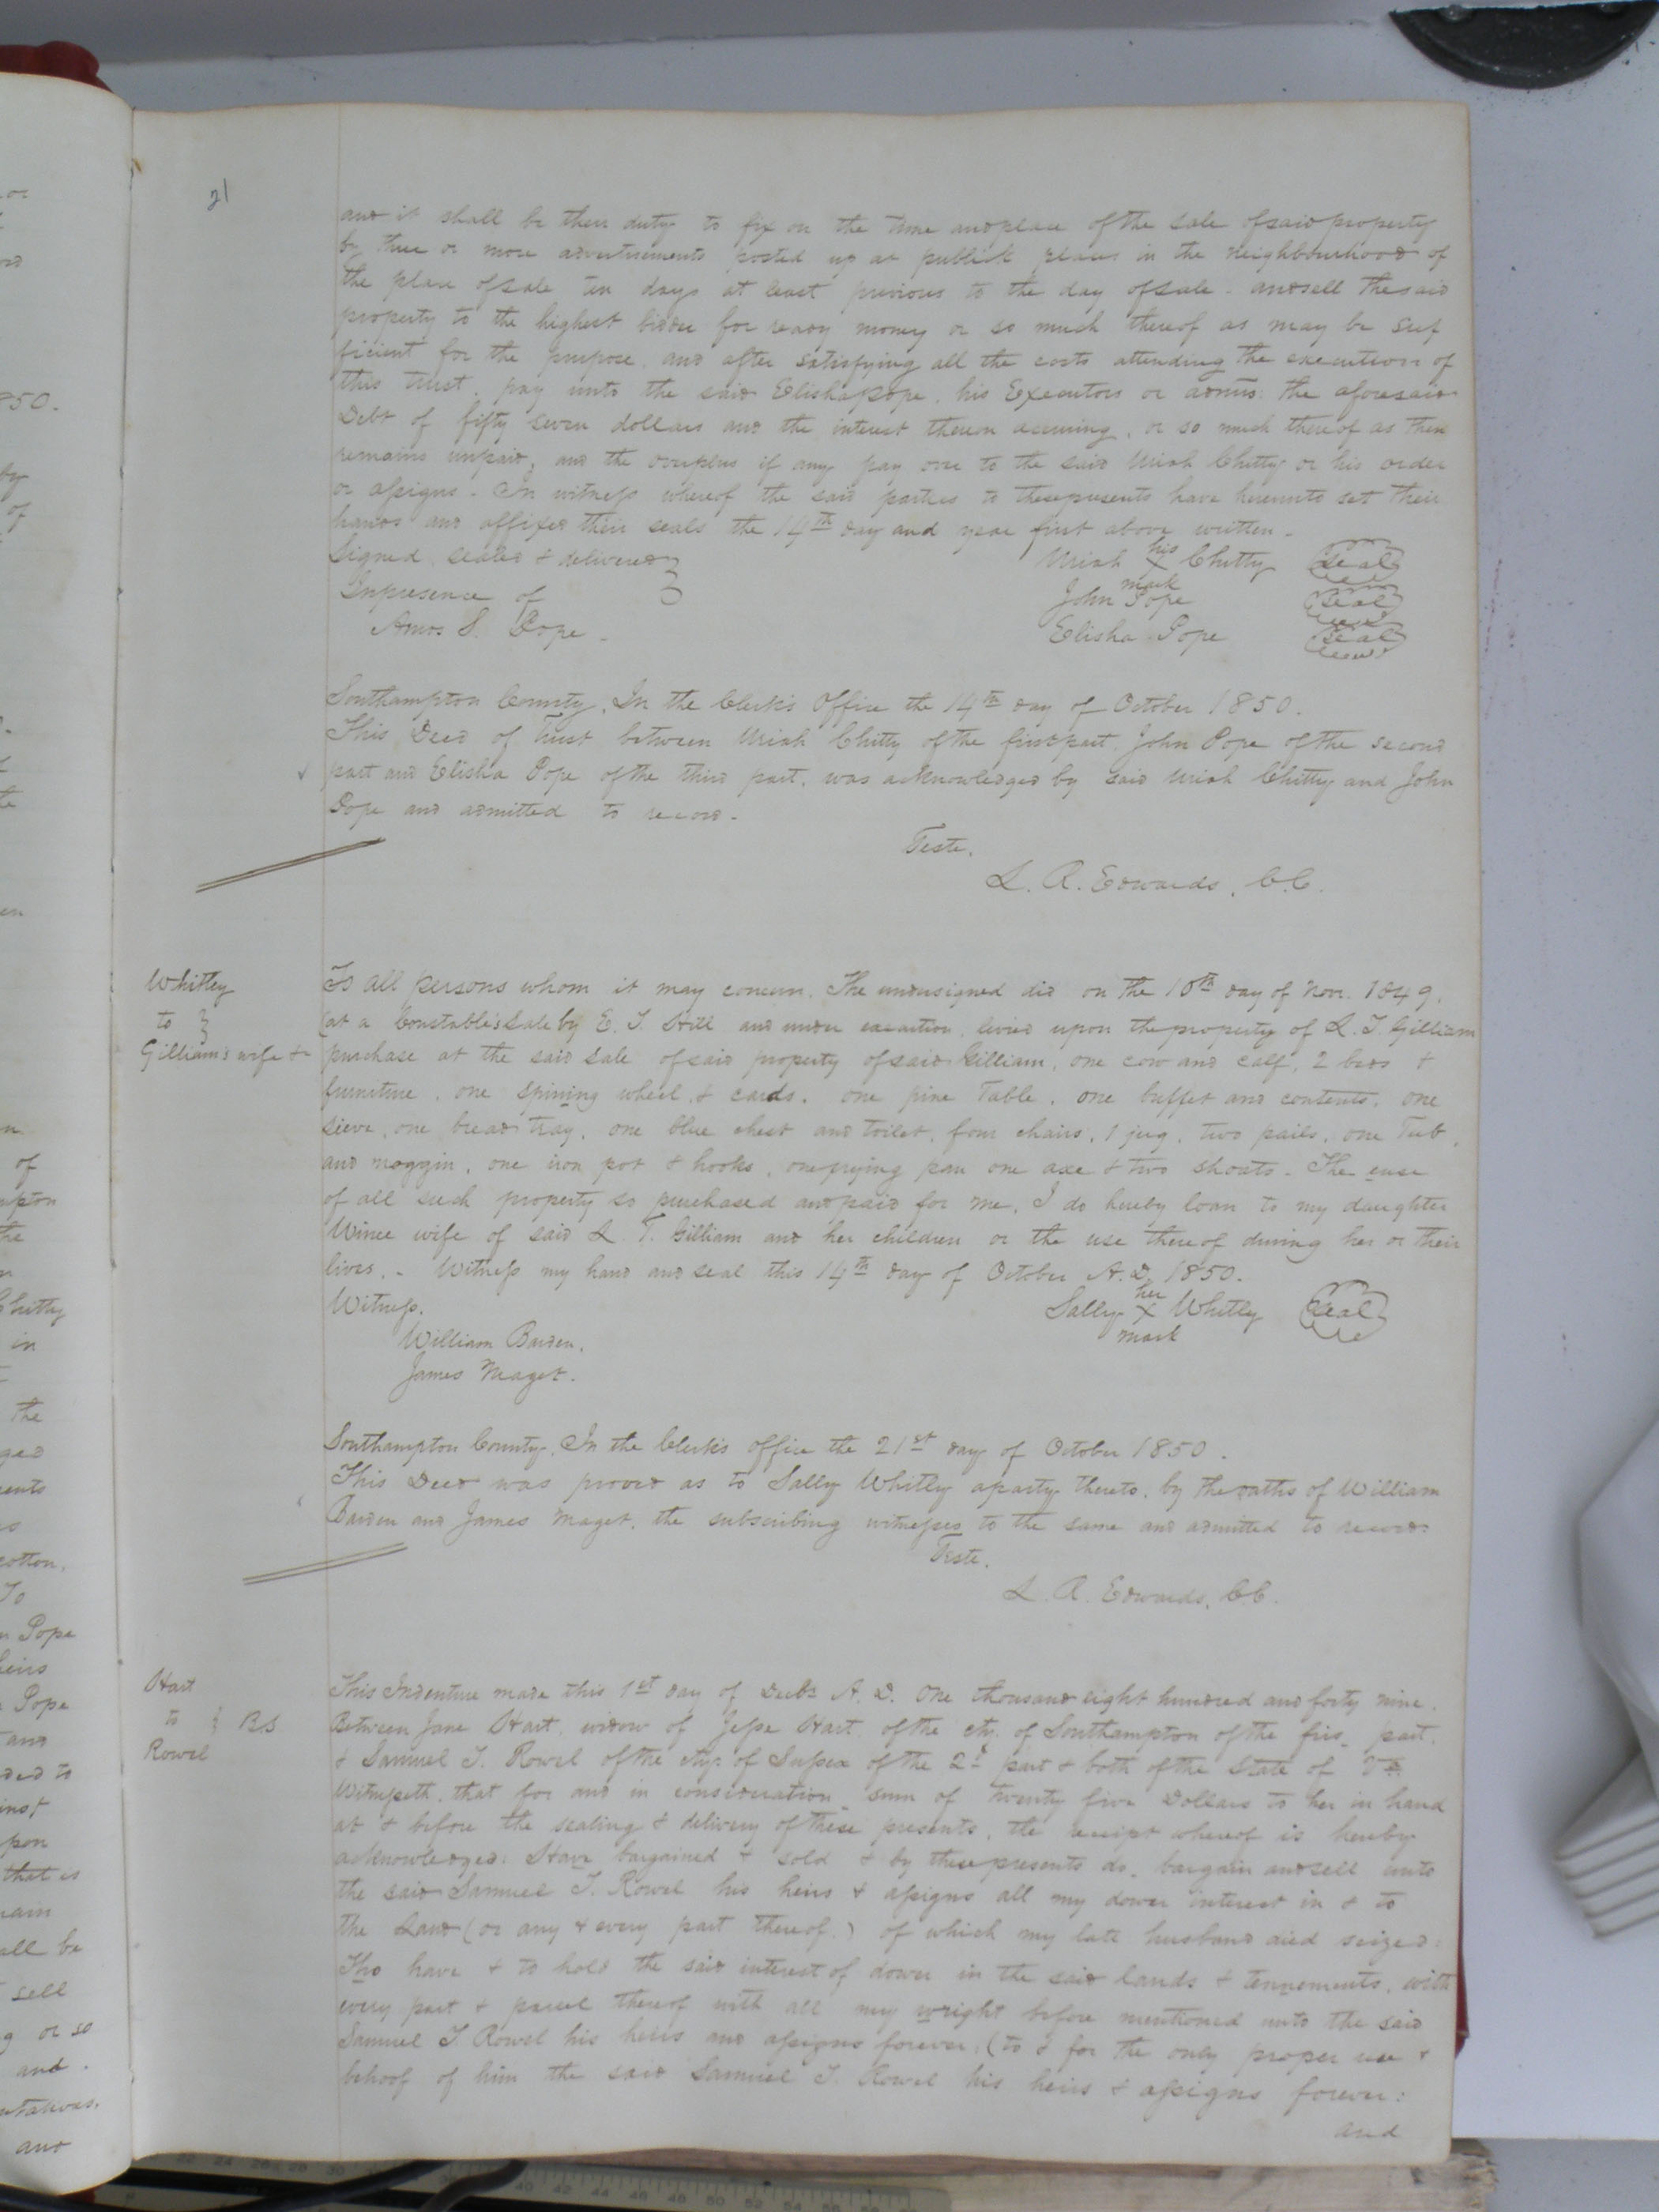 21
and it shall be their duty to fix on the time and place of the sale of said property
by three or more advertisements posted up at publick places in the neighbourhood of
the place of sale ten days at least previous to the day of sale - and sell the said
property to the highest bidder for ready money or so much thereof as may be suf
ficient for the purpose. and after satisfying all the costs attending the execution of
this trust. pay unto the said Elisha Pope, his Executors or admrs. the aforesaid
Debt of fifty seven dollars and the interest thereon accruing, or so much thereof as then
remains unpaid, and the overplus if any pay over to the said Uriah Chitty or his order
or assigns. In witness whereof the said parties to these presents have hereunto set their
hands and affixed their seals the 14th day and year first above written.
Signed, sealed & delivered
In presence of
Amos S. Pope.
Uriah his X mark Chitty seal
John Pope seal
Elisha Pope seal
Southampton County, In the Clerk's Office the 14th day of October 1850.
This Deed of Trust between Uriah Chitty of the first part John Pope of the second
part and Elisha Pope of the third part, was acknowledged by said Uriah Chitty and John
Pope and admitted to record.
Teste.
L. R. Edwards, C.C.
Whitley
to
Gilliam's wife &
To all persons whom it may concern. The undersigned did on the 10th day of Nov. 1849,
(at a Constable's Sale by E. J. Hill and under execution, levied upon the property of L. T. Gilliam
purchase at the said sale of said property of said Gilliam, one cow and calf, 2 beds &
furniture, one spining wheel & cards, one pine Table, one buffet and contents, one
sieve, one bread tray, one blue chest and toilet, four chairs, 1 jug, two pails, one Tub,
and noggin, one iron pot & hooks, one frying pan one axe & two shoats - The euse
of all such property so purchased and paid for me, I do hereby loan to my daughter
Winee wife of said L. T. Gilliam and her children or the use thereof during her or their
lives. - Witness my hand and seal this 14th day of October A.D. 1850.
Witness.
William Barden.
James Maget.
Sally her X mark Whitly seal
Southampton County, In the Clerk's office the 21st day of October 1850.
This Deed was proved as to Sally Whitly a party thereto, by the oaths of William
Barden and James Maget, the subscribing witnesses to the same and admitted to record
Teste.
L. R. Edwards, CC.
Hart
to BS
Rowel
This Indenture made this 1st day of Decbr A.D. One thousand eight hundred and forty nine.
Between Jane Hart, widow of Jesse Hart of the cty. of Southampton of the firs part.
& Samuel T. Rowel of the cty. of Sussex of the 2d part & both of the State of Va.
Witnesseth, that for and in consideration sum of twenty five Dollars to her in hand
at & before the sealing & delivery of these presents, the receipt whereof is hereby
acknowledged: Have bargained & sold & by these presents do. bargain and sell unto
the said Samuel T. Rowel his heirs & assigns all my dower interest in & to
the Land (or any & every part thereof.) of which my late husband died seized:
Tho have & to hold the said interest of dower in the said lands & tennements, with
every part & parcel thereof with all my wright before mentioned unto the said
Samuel T Rowel his heirs and assigns forever, (to & for the only proper use &
behoof of him the said Samuel T. Rowel his heirs & assigns forever:
and